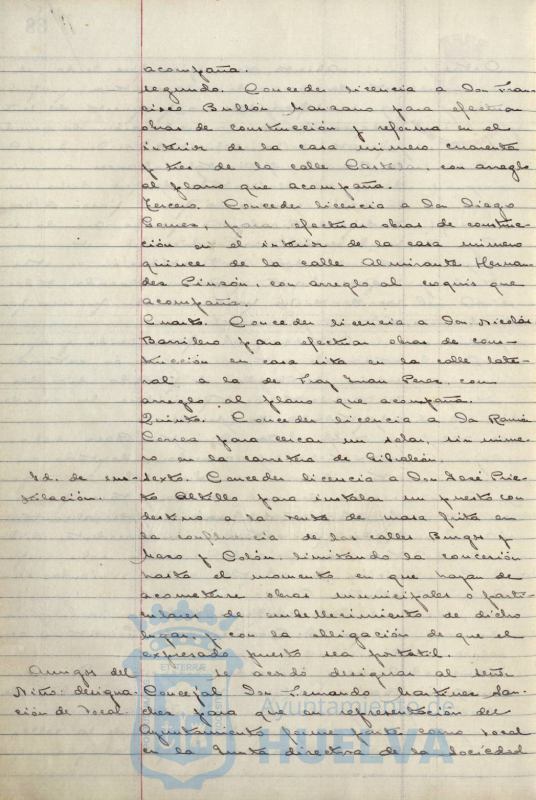 acompaña.
Segundo. Conceder licencia a Don Fran-
cisco Bullón Manzano para efectuar
obras de construcción y reforma en el
interior de la casa número cuarenta
y tres de la calle Castelar, con arreglo
al plano que acompaña.
Tercero. Conceder licencia a Don Diego
Gomez, para efectuar obras de construc-
ción en el interior de la casa número
quince de la calle Almirante Hernan-
dez Pinzón, con arreglo al croquis que
acompaña.
Cuarto. Conceder licencia a Don Nicolás
Barrilero para efectuar obras de cons-
trucción en casa sita en la calle late-
ral a la de Fray Juan Perez, con
arreglo al plano que acompaña.
Quinto. Conceder licencia a Dn Ramón
Correa para cercar un solar, sin núme-
ro en la carretera de Gibraleón.
Id. de ins-
talación.
Sexto. Conceder licencia a Don José Prie-
to Altillo para instalar un puesto con
destino a la venta de masa frita en
la confluencia de las calles Burgos y
Mazo y Colón, limitando la concesión
hasta el momento en que hayan de
acometerse obras municipales o parti-
culares de embellecimiento de dicho
lugar, y con la obligación de que el
expresado puesto sea portatil.
Amigos del
Niño: designa-
ción de Vocal.
Se acordó designar al señor
Concejal Don Fernando Martinez San-
chez para que en representación del
Ayuntamiento forme parte como vocal
en la Junta directiva de la Sociedad
Ayuntamiento de
HUELVA